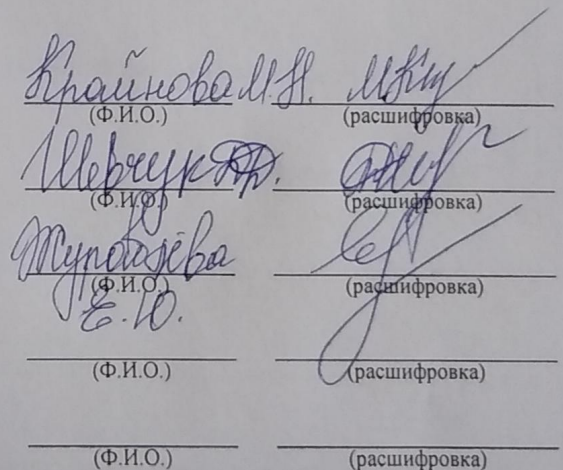 Крайнова М.Н.
(Ф.И.О.) (расшифровка)
Шевчук
(Ф.И.О.) (расшифровка)
(Ф.И.О.) (расшифровка)
Е.Ю.
(Ф.И.О.) (расшифровка)
(Ф.И.О.) (расшифровка)